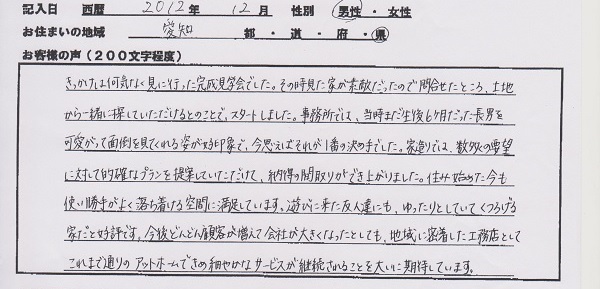 記入日 西暦 2012年 12月 性別 男性・女性
お住まいの地域 愛知 都・道・府・県
お客様の声（200文字程度）
きっかけは何気なく見に行った完成見学会でした。その時見た家が素敵だったので問合せたところ、土地
から一緒に探していただけるとのことで、スタートしました。事務所では、当時まだ生後6ヶ月だった長男を
可愛がって面倒を見てくれる姿が好印象で、今思えばそれが1番の決め手でした。家造りでは、数多くの要望
に対して的確なプランを提案していただけて、納得の間取りができ上がりました。住み始めた今も
使い勝手がよく落ち着ける空間に満足しています。遊びに来た友人達にも、ゆったりとしていてくつろげる
家だと好評です。今後どんどん顧客が増えて会社が大きくなったとしても、地域に密着した工務店として
これまで通りのアットホームできめ細やかなサービスが継続されることを大いに期待しています。